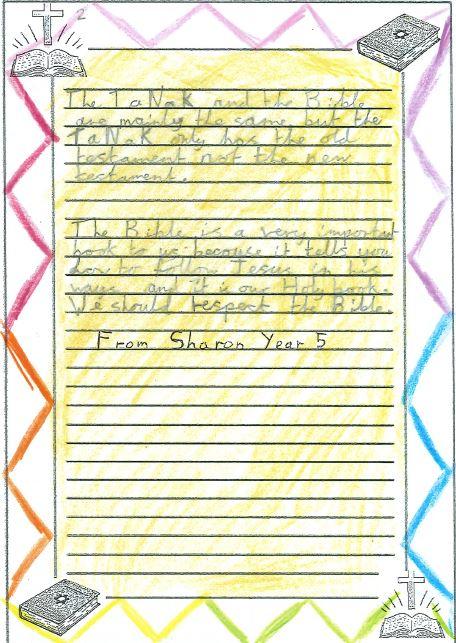 2
The TaNaK and the Bible
are mainly the same but the
TaNaK only has the old
testament not the new
testament.
The Bible is a very important
book to us because it tells you
how to follow Jesus in his
ways and it is our Holy book.
We should respect the Bible.
From Sharon Year 5